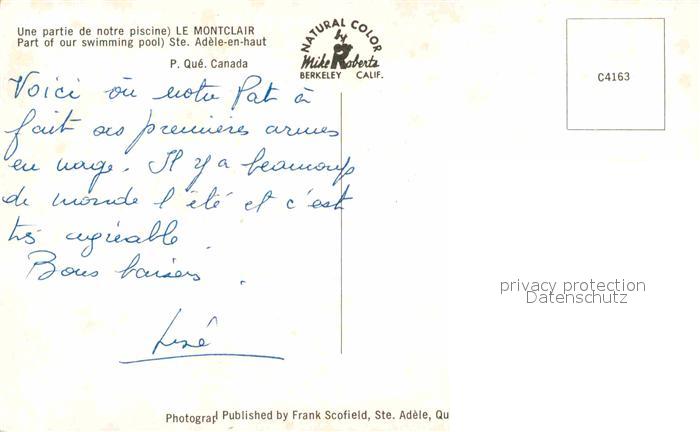 Une partie de notre piscine) LE MONTCLAIR
Part of our swimming pool) Ste. Adèle-en-haut
P. Qué. Canada
NATURAL COLOR
by
Mike Roberts
BERKELEY CALIF.
C4163
Voici où notre Pat à
fait ses premières armes
en nage. Il y a beaucoup
de monde l'été et c'est
très agréable.
Bons baisers.
privacy protection
Datenschutz
Photograp
Published by Frank Scofield, Ste. Adèle, Qu